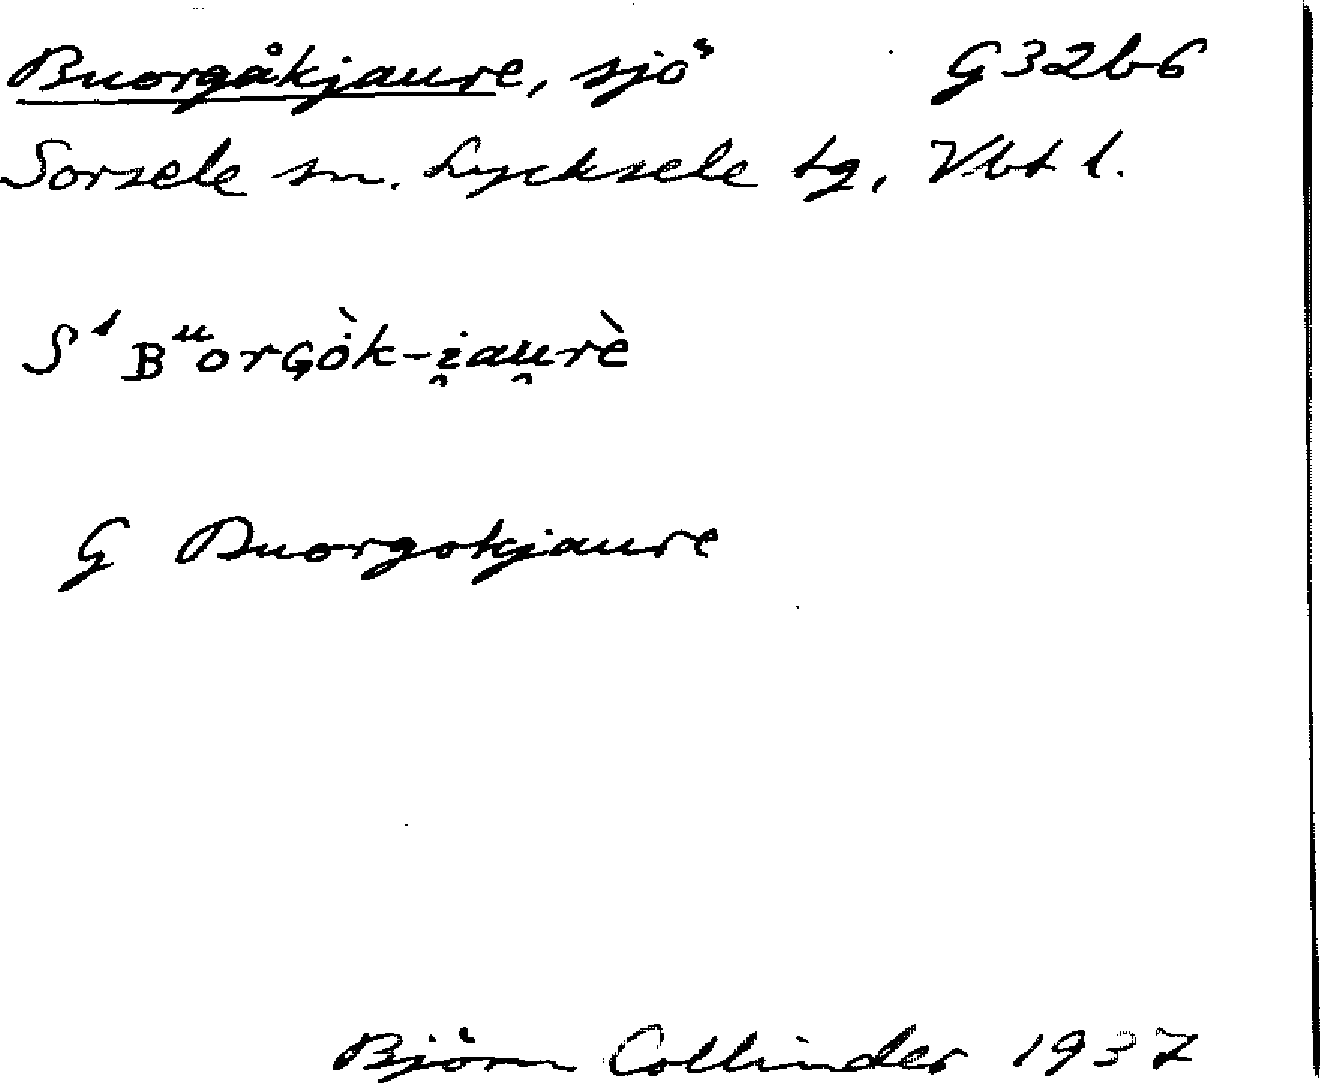 Buorgåkjaure, sjö G32b6
Sorsele sn. Lycksele tg, Vbt l.
S¹ Bᵘorgȯ̀k-i̯au̯rè
G Buorgokjaure
Björn Collinder 1937